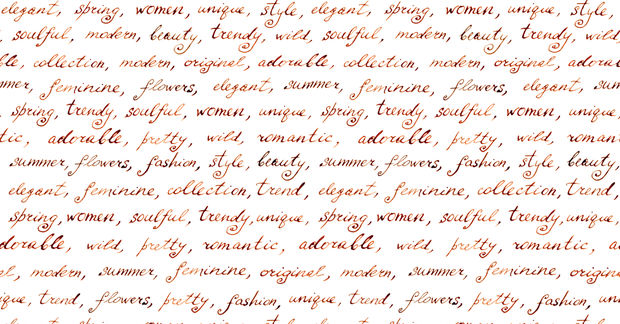 elegant, spring, women, unique, style, elegant, spring, women, unique, style,
soulful, modern, beauty, trendy, wild, soulful, modern, beauty, trendy, wild,
collection, modern, original, adorable, collection, modern, original,
feminine, flowers, elegant, summer, feminine, flowers, elegant,
spring, trendy, soulful, women, unique, spring, trendy, soulful, women, unique,
adorable, pretty, wild, romantic, adorable, pretty, wild,
summer, flowers, fashion, style, beauty, summer, flowers, fashion, style, beauty,
elegant, feminine, collection, trend, elegant, feminine, collection, trend,
spring, women, soulful, trendy, unique, spring, women, soulful, trendy, unique,
adorable, wild, pretty, romantic, adorable, wild, pretty, romantic,
modern, summer, feminine, original, modern, summer, feminine, original
trend, flowers, pretty, fashion, unique, trend, flowers, pretty, fashion,